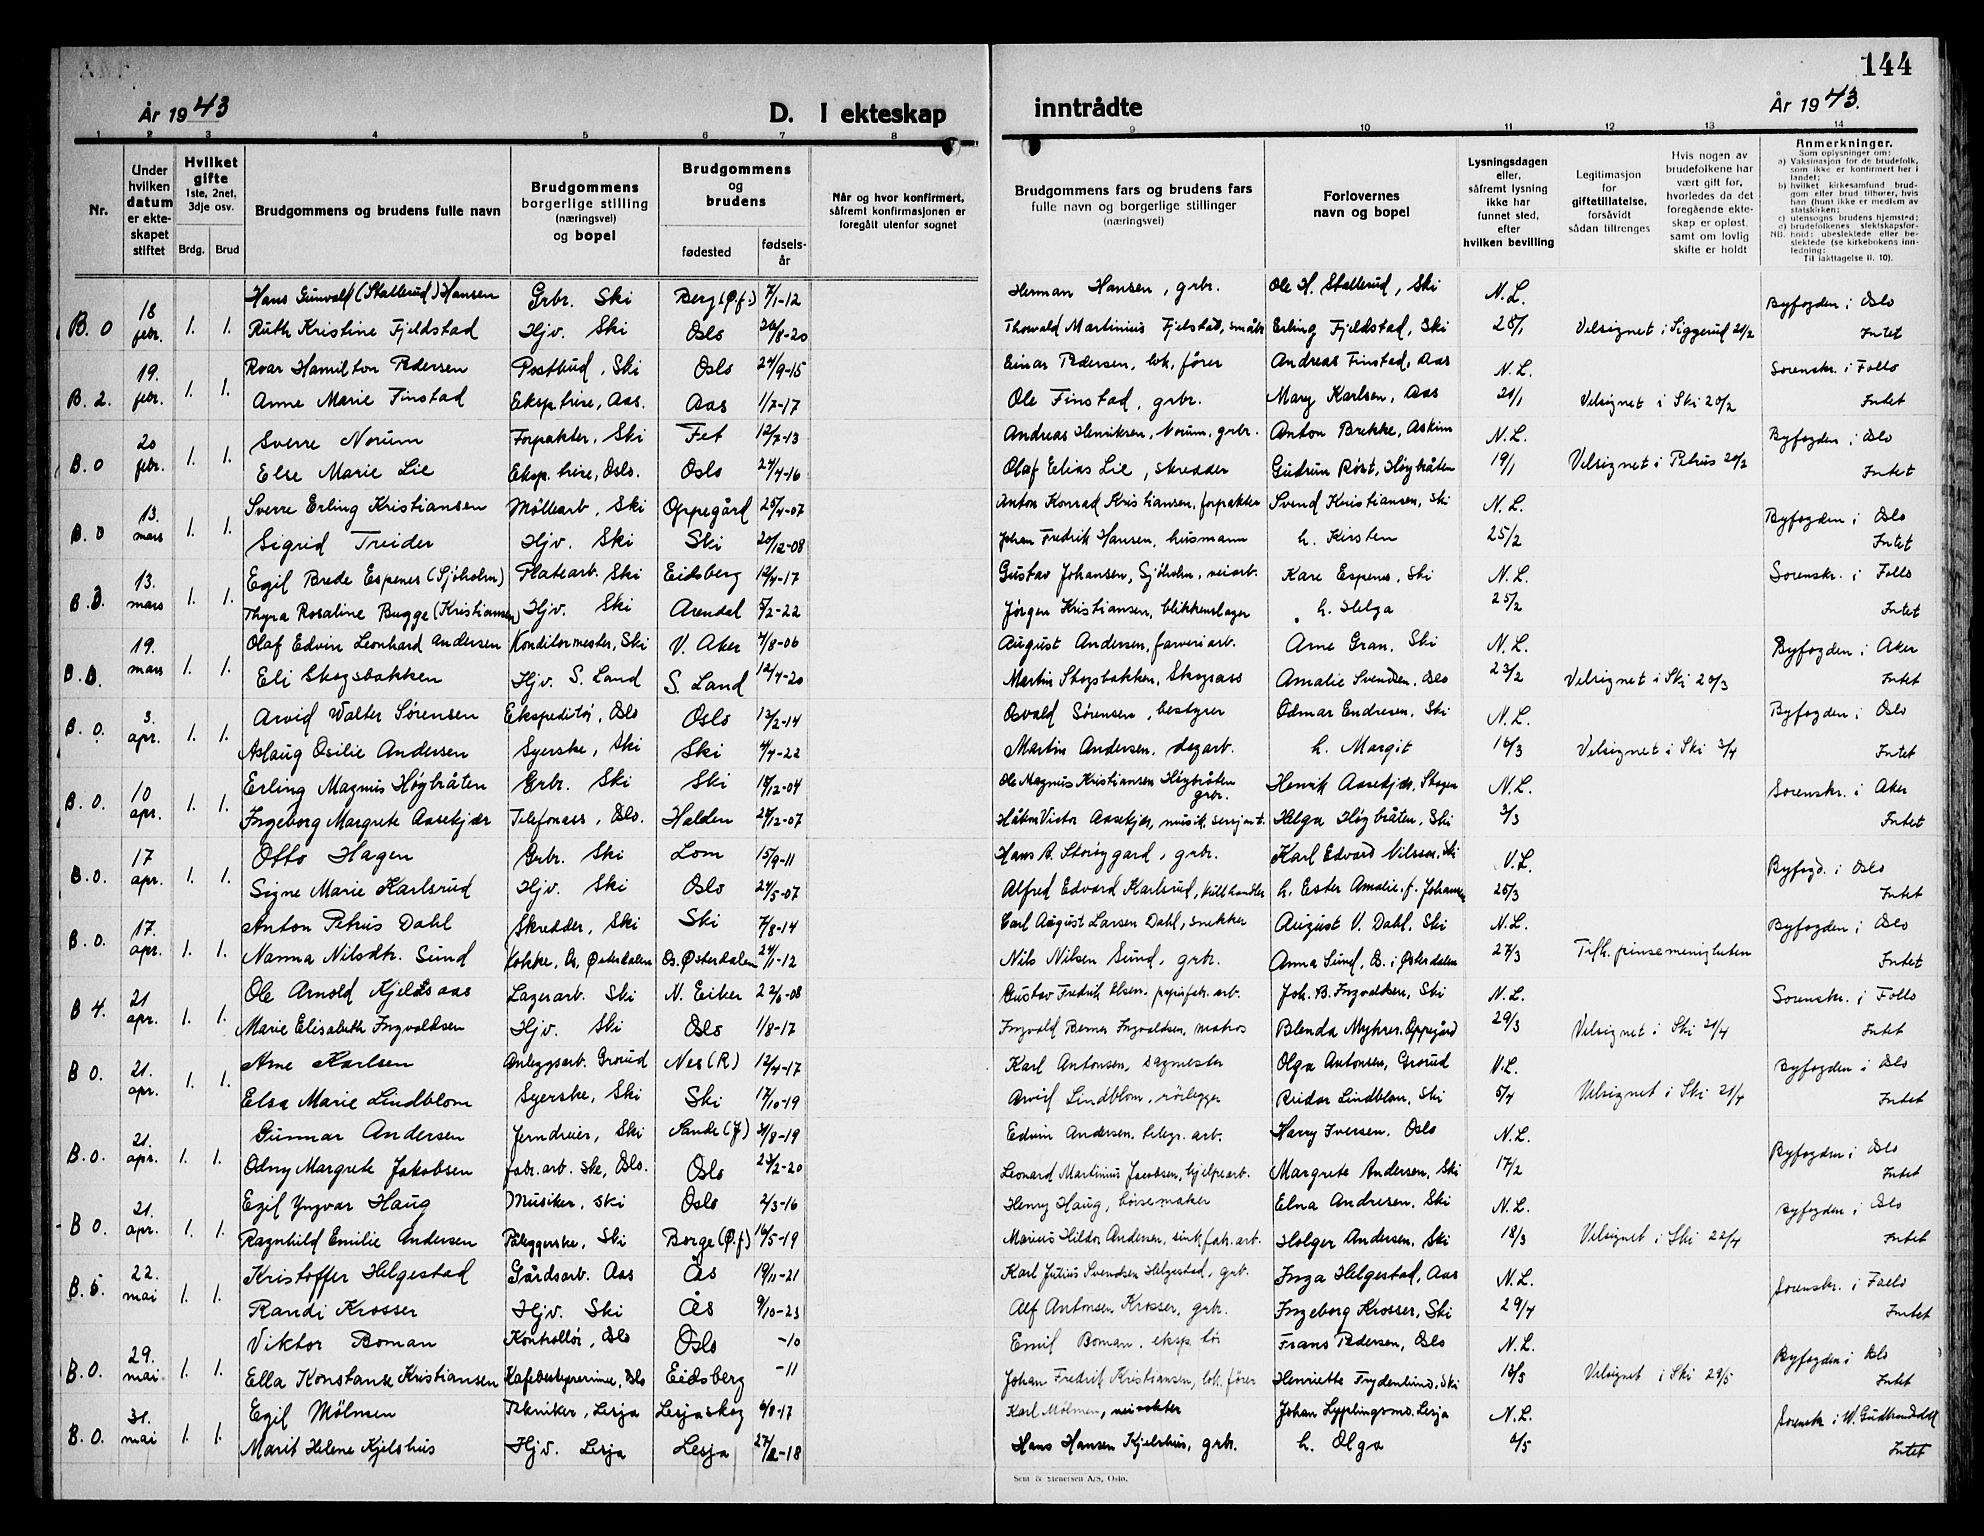 144
År 1943
D. I ekteskap inntrådte
År 1943.
1 2 3 4 5 6 7 8 9 10 11 12 13 14
Nr.
Under hvilken datum er ekteskapet stiftet
Hvilket gifte 1ste, 2net, 3dje osv.
Brdg. Brud
Brudgommens og brudens fulle navn
Brudgommens borgerlige stilling (næringsvei) og bopel
Brudgommens og brudens
fødested fødselsår
Når og hvor konfirmert, såfremt konfirmasjonen er foregått utenfor sognet
Brudgommens fars og brudens fars fulle navn og borgerlige stillinger (næringsvei)
Forlovernes navn og bopel
Lysningsdagen eller, såfremt lysning ikke har funnet sted, efter hvilken bevilling
Legitimasjon for giftetillatelse, forsåvidt sådan tiltrenges
Hvis nogen av brudefolkene har vært gift før, hvorledes da det foregående ekteskap er opløst, samt om lovlig skifte er holdt
Anmerkninger.
Som oplysninger om:
a) Vaksinasjon for de brudefolk, som ikke er konfirmert her i landet;
b) hvilket kirkesamfund brudgom eller brud tilhører, hvis han (hun) ikke er medlem av statskirken;
c) utensogns brudens hjemsted;
d) brudefolkenes slektskapsforhold: ubeslektede eller beslektede (se kirkebokens innledning:
NB. Til iakttagelse II. 10).
B. 0 18 febr. 1. 1. Hans Gunvald (Stallerud) Hansen Grbr. Ski Berg (Ø.f.) 7/1-12 Herman Hansen, grbr. Ole H. Stallerud, Ski N.L. Byfogden i Oslo
Ruth Kristine Fjeldstad Hjv. Ski Oslo 26/8-20 Thorvald Martinius Fjelstad, småbr. Erling Fjeldstad, Ski 28/1 Velsignet i Siggerud 21/2 Intet
B. 2. 19. febr. 1. 1. Roar Hamilton Pedersen Postbud, Ski Oslo 24/9-15 Einar Pedersen, lok. fører Andreas Finstad, Aas N.L. Sorenskr. i Follo
Anne Marie Finstad Eksp.trise, Aas. Aas 1/7-17 Ole Finstad, grbr. Mary Karlsen, Aas 21/1 Velsignet i Ski 20/2 Intet
B. 0 20 febr. 1. 1. Sverre Norum Forpakter, Ski Fet 12/7-13 Andreas Henriksen, Norum, grbr. Anton Brekke, Askim N.L. Byfogden i Oslo
Else Marie Lie Eksp. trise, Oslo. Oslo 24/4-16 Olaf Elias Lie, skredder Gudrun Røst, Høybråten 19/1 Velsignet i Petrus 20/2 Intet
B. 0 13. mars 1. 1. Sverre Erling Kristiansen Møllearb, Ski Oppegård 25/4-07 Anton Konrad Kristiansen, forpakter Svend Kristiansen, Ski N.L. Byfogden i Oslo
Sigrid Treider Hjv. Ski Ski 20/12-08 Johan Fredrik Hansen, husmann h. Kirsten 25/2 Intet
B. 3. 13. mars 1. 1. Egil Brede Espenes (Sjøholm) Platearb. Ski Eidsberg 12/4-17 Gustav Johansen, Sjøholm, veiarb. Kare Espenes, Ski N.L. Sorenskr. i Follo
Thyra Rosaline Bugge (Kristiansen) Hjv. Ski Arendal 5/2-22 Jørgen Kristiansen, blikkenslager h. Helga 25/2 Intet
B. 0. 19. mars 1. 1. Olaf Edvin Leonhard Andersen Konditormester, Ski V. Aker 4/8-06 August Andersen, farveriarb. Arne Gran, Ski N.L. Byfogden i Aker
Eli Skogsbakken Hjv. S. Land S. Land 12/4-20 Martin Skogsbakken, Skogsass Amalie Svendsen, Oslo 23/2 Velsignet i Ski 20/3 Intet
B. 0. 3. apr. 1. 1. Arvid Walter Sørensen Ekspeditør, Oslo Oslo 13/2-14 Osvald Sørensen, bestyrer Odmar Endresen, Ski N.L. Byfogden i Oslo
Aslaug Osilie Andersen Syerske, Ski Ski 4/4-22 Martin Andersen, dagarb. h. Margit 16/3 Velsignet i Ski 3/4 Intet
B. 0. 10 apr. 1. 1. Erling Magnus Høybråten Grbr. Ski Ski 14/12-04 Ole Magnus Kristiansen Høybråten grbr. Henrik Aasekjær, Skogen N.L. Sorenskr. i Aker
Ingeborg Margrete Aasekjær Telefonass, Oslo. Halden 24/12-07 Håkon Victor Aasekjær, musik. sersjant. Helga Høybråten, Ski 3/3 Intet
B. 0. 17 apr. 1. 1. Otto Hagen Grbr. Ski Lom 15/9-11 Hans A. Storøygard, grbr. Karl Edvard Nilssen, Ski N.L. Byfogd. i Oslo
Signe Marie Karlsrud Hjv. Ski Oslo 24/5-07 Alfred Edvard Karlsrud, kullhandler h. Ester Amalie f. Johansen 26/3 Intet
B. 0. 17. apr. 1. 1. Anton Petrus Dahl Skredder, Ski Ski 7/8-14 Carl August Larsen Dahl, snekker August V. Dahl, Ski N.L. Byfogden i Oslo
Nanna Nilsdtr. Sund Kokke, Os. Østerdalen Os. Østerdalen 24/1-12 Nils Nilsen Sund, grbr. Anna Sund, Os. i Østerdalen 27/3 Tilh. pinsemenigheten Intet
B 4. 21 apr. 1. 1. Ole Arnold Kjeldsaas Lagerarb. Ski N. Eiker 22/6-08 Gustav Fredrik Olsen, papirfabr. arb. Joh. B. Ingvaldsen, Ski N.L. Sorenskr. i Follo
Marie Elisabeth Ingvaldsen Hjv. Ski Oslo 1/8-17 Ingvald Berner Ingvaldsen, matros Blenda Myhrer, Oppegård 29/3 Velsignet i Ski 21/4 Intet
B 0. 21. apr. 1. 1. Arne Karlsen Anleggsarb. Grorud Nes (R) 12/4-17 Karl Antonsen, sagmester Olga Antonsen, Grorud N.L. Byfogden i Oslo
Elsa Marie Lindblom Syerske, Ski Ski 17/10-19 Arvid Lindblom, rørlegger Reidar Lindblom, Ski 5/4 Velsignet i Ski 21/4 Intet
B. 0. 21. apr. 1. 1. Gunnar Andersen Jerndreier, Ski Sande (J) 31/8-19 Edvin Andersen, telegr. arb. Harry Iversen, Oslo N.L. Byfogden i Oslo
Odny Margrete Jakobsen fabr. arb. ske, Oslo. Oslo 23/2-20 Leonard Martinius Jacobsen, hjelpearb. Margrete Andersen, Ski 17/2 Intet
B 0. 21. apr. 1. 1. Egil Yngvar Haug Musiker, Ski Oslo 2/3-16 Henry Haug, børsemaker Elna Andresen, Ski N.L. Byfogden i Oslo
Ragnhild Emilie Andersen Påleggerske, Ski Borge (Ø.f) 16/5-19 Marius Hildor Andersen, sinkfabr. arb. Holger Andersen, Ski 18/3 Velsignet i Ski 22/4 Intet
B. 5. 22. mai 1. 1. Kristoffer Helgestad Gårdsarb. Aas Ås 19/11-21 Karl Julius Svendsen Helgestad, gbr. Inga Helgestad, Aas N.L. Sorenskr. i Follo
Randi Krosser Hjv. Ski Ås 9/10-23 Alf Antonsen Krosser, grbr. Ingeborg Krosser, Ski 29/4 Intet
B. 0. 29. mai 1. 1. Viktor Boman Kontrollør, Oslo Oslo -10 Emil Boman, eksp. tør Frans Pedersen, Oslo N.L. Byfogden i Oslo
Ella Konstanse Kristiansen Kafebestyrerinne, Oslo Eidsberg -11 Johan Fredrik Kristiansen, lok. fører Henriette Frydenlund, Ski 13/5 Velsignet i Ski 29/5 Intet
B. 0. 31. mai 1. 1. Egil Mølmen Tekniker, Lesja Lesjaskog 6/8-17 Karl Mølmen, veivokter Johan Lyplingsmo, Lesja N.L. Sorenskr i N. Gudbrandsdal
Marit Helene Kjelshus Hjv. Lesja Lesja 27/2-18 Hans Hansen Kjelshus, grbr. h. Olga 6/5 Intet
Sem & Stenersen A/S, Oslo.